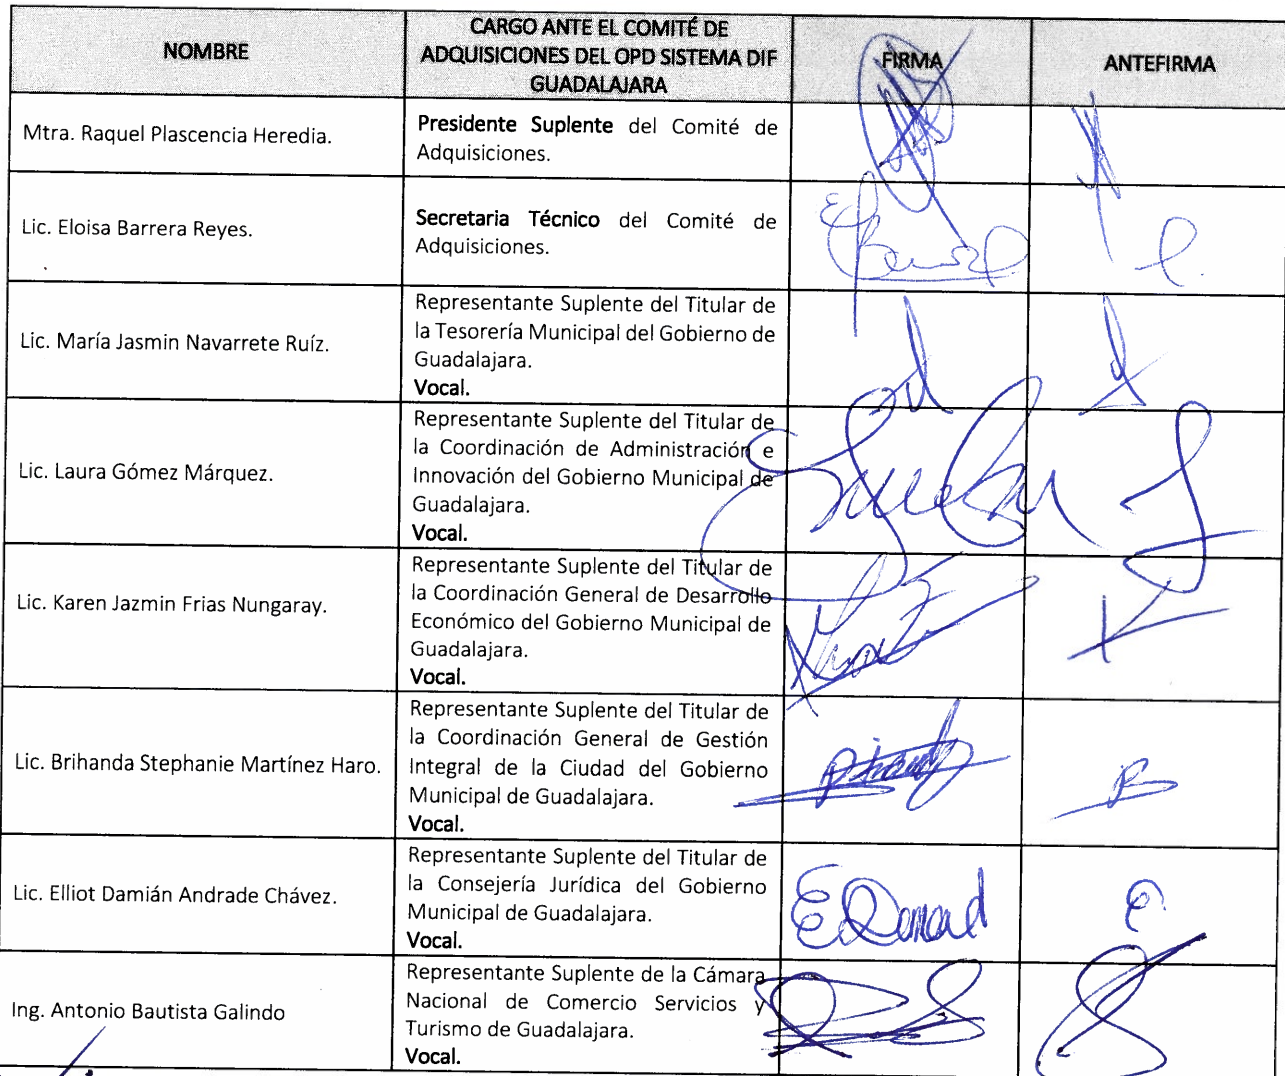 NOMBRE
CARGO ANTE EL COMITÉ DE
ADQUISICIONES DEL OPD SISTEMA DIF
GUADALAJARA
FIRMA
ANTEFIRMA
Mtra. Raquel Plascencia Heredia.
Presidente Suplente del Comité de
Adquisiciones.
Lic. Eloisa Barrera Reyes.
Secretaria Técnico del Comité de
Adquisiciones.
Lic. María Jasmin Navarrete Ruíz.
Representante Suplente del Titular de
la Tesorería Municipal del Gobierno de
Guadalajara.
Vocal.
Lic. Laura Gómez Márquez.
Representante Suplente del Titular de
la Coordinación de Administración e
Innovación del Gobierno Municipal de
Guadalajara.
Vocal.
Lic. Karen Jazmin Frias Nungaray.
Representante Suplente del Titular de
la Coordinación General de Desarrollo
Económico del Gobierno Municipal de
Guadalajara.
Vocal.
Lic. Brihanda Stephanie Martínez Haro.
Representante Suplente del Titular de
la Coordinación General de Gestión
Integral de la Ciudad del Gobierno
Municipal de Guadalajara.
Vocal.
Lic. Elliot Damián Andrade Chávez.
Representante Suplente del Titular de
la Consejería Jurídica del Gobierno
Municipal de Guadalajara.
Vocal.
Ing. Antonio Bautista Galindo
Representante Suplente de la Cámara
Nacional de Comercio Servicios y
Turismo de Guadalajara.
Vocal.